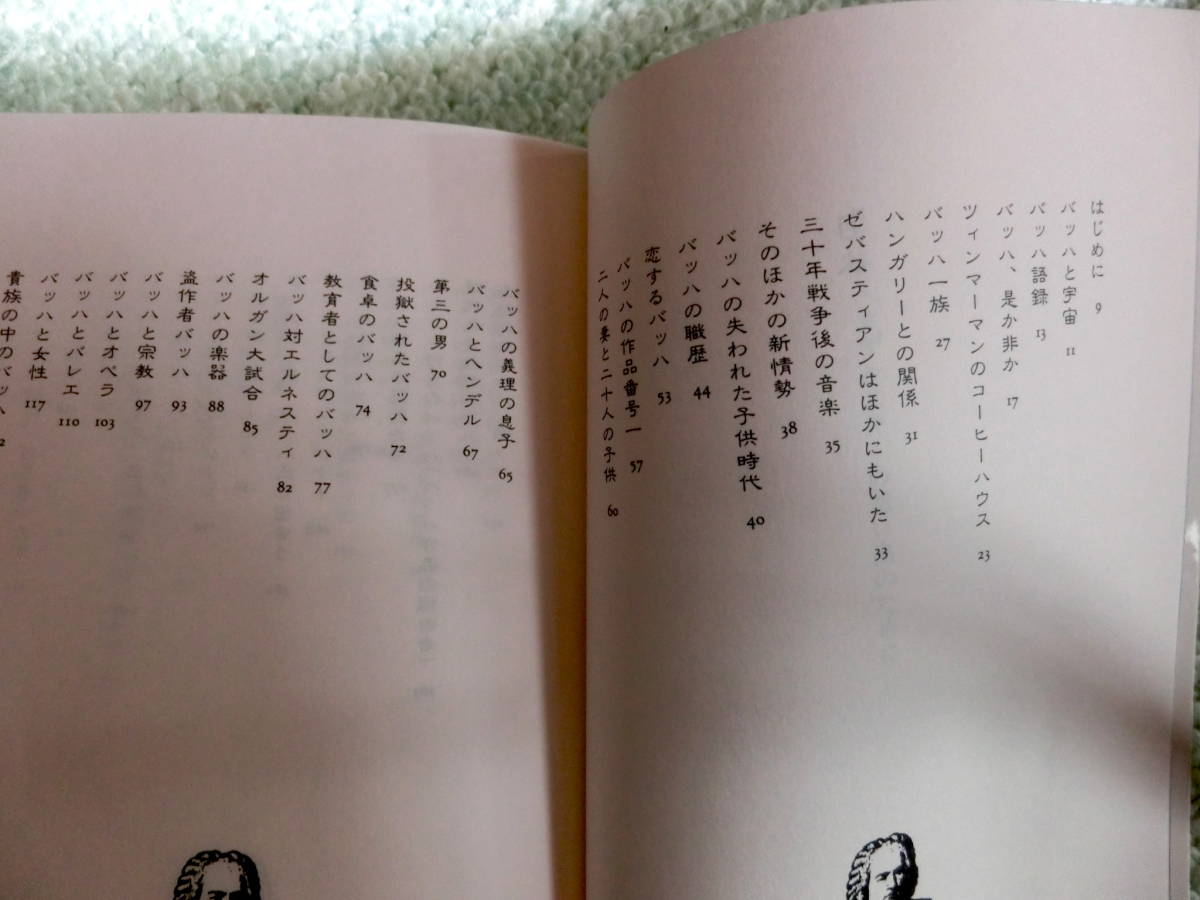 はじめに 9
バッハと宇宙 11
バッハ語録 13
バッハ、是か非か 17
ツィンマーマンのコーヒーハウス 23
バッハ一族 27
ハンガリーとの関係 31
ゼバスティアンはほかにもいた 33
三十年戦争後の音楽 35
そのほかの新情勢 38
バッハの失われた子供時代 40
バッハの職歴 44
恋するバッハ 53
バッハの作品番号一 57
二人の妻と二十人の子供 60
バッハの義理の息子 65
バッハとヘンデル 67
第三の男 70
投獄されたバッハ 72
食卓のバッハ 74
教育者としてのバッハ 77
バッハ対エルネスティ 82
オルガン大試合 85
バッハの楽器 88
盗作者バッハ 93
バッハと宗教 97
バッハとオペラ 103
バッハとバレエ 110
バッハと女性 117
貴族の中のバッハ